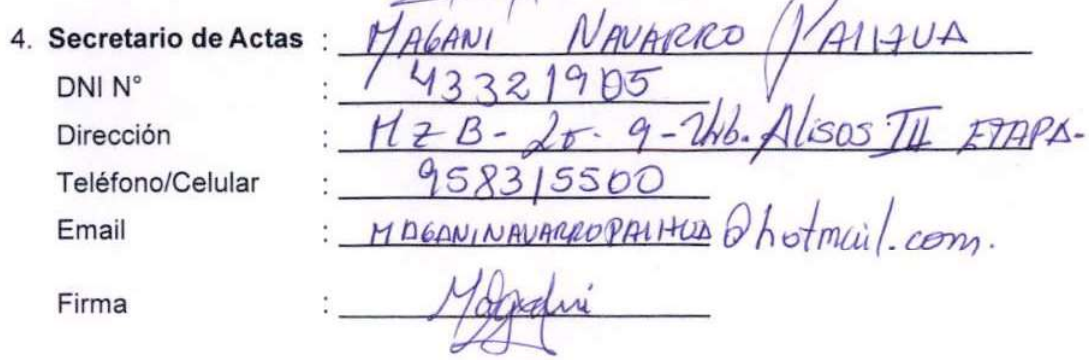 4. Secretario de Actas : MAGANI NAVARRO PAIHUA
DNI N° : 43321905
Dirección : Mz B - Lt. 9 - Urb. Alisos III ETAPA-
Teléfono/Celular : 958315500
Email : MAGANINAVARROPAIHUA@hotmail.com.
Firma : Magani